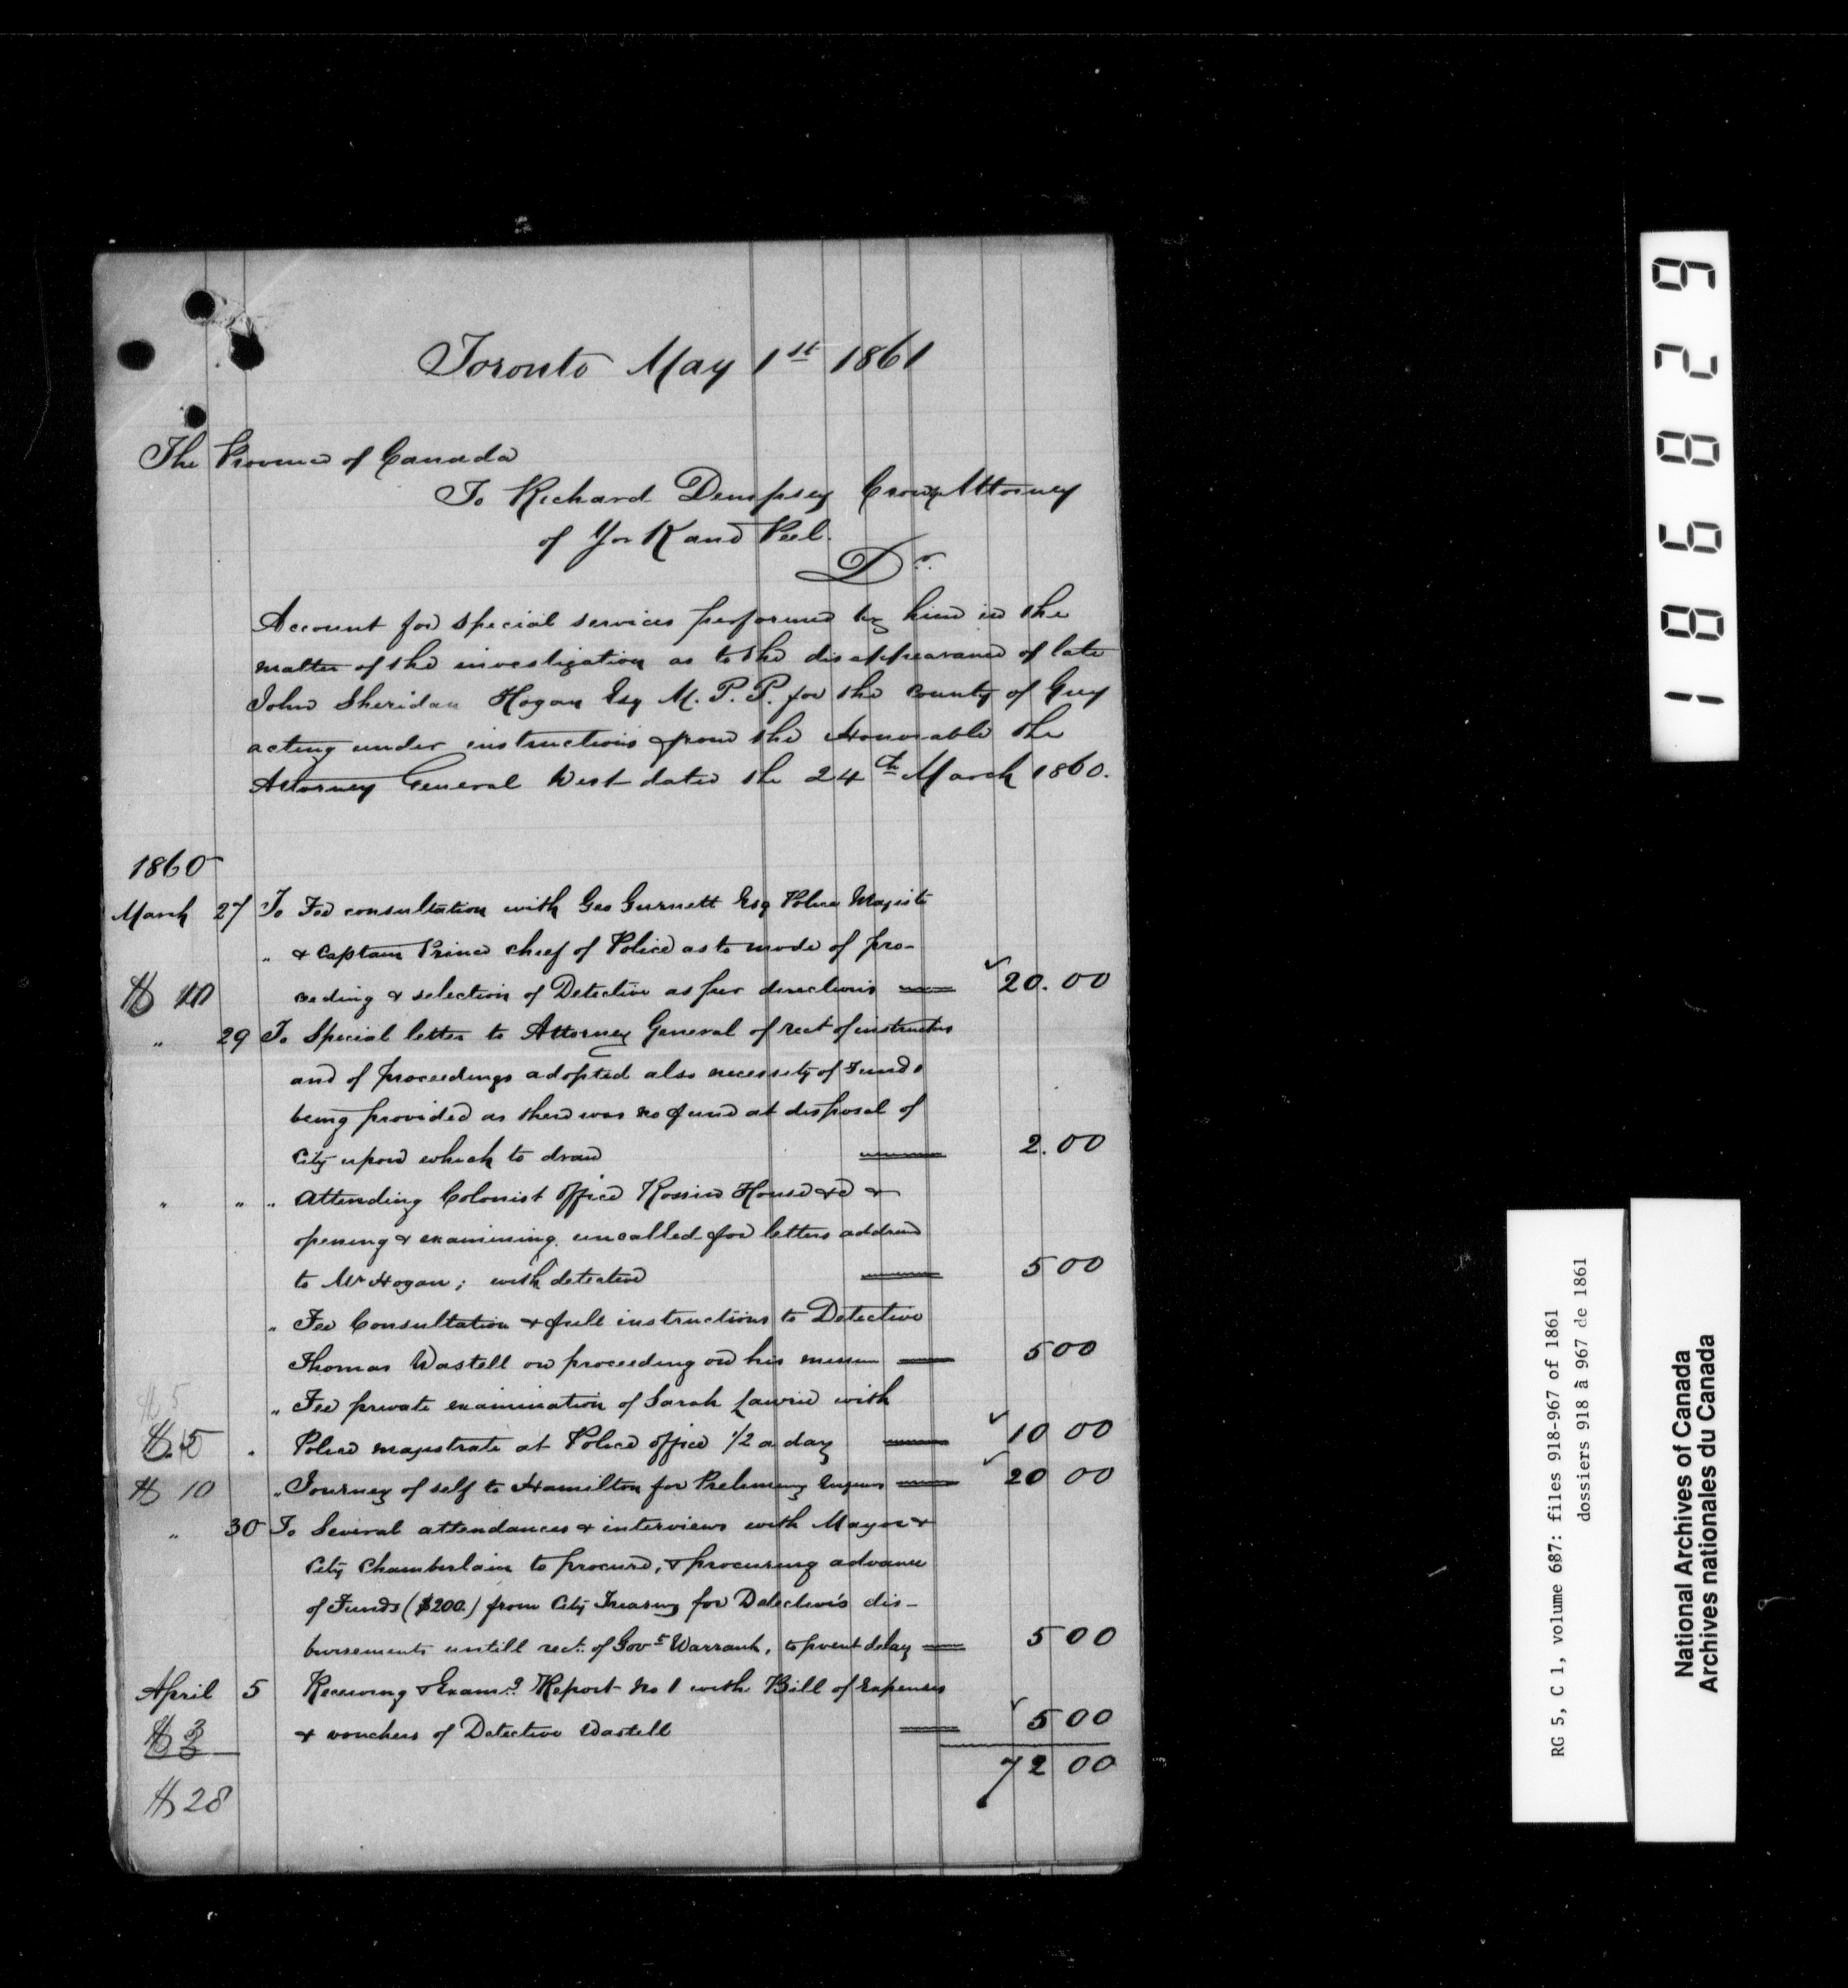 Toronto May 1st 1861
The Province of Canada
To Richard Dempsey Crown Attorney
of York and Peel.
Dr.
Account for special services performed by him in the
matter of the investigation as to the disappearance of late
John Sheridan Hogan Esq M.P.P. for the county of Grey
acting under instructions from the Honorable the
Attorney General West dated the 24th March 1860.
1860
March 27 To Fee consultation with Geo Gurnett Esq Police Magistte
" & Captain Prince chief of Police as to mode of pro-
$ 10 ceeding & selection of Detective as per directions 20.00
" 29 To Special letter to Attorney General of rect of instructns
and of proceedings adopted also necessity of Funds
being provided as there was no fund at disposal of
City upon which to draw 2.00
" " " Attending Colonist office Rossin House &c &
opening & examining uncalled for letters addressd
to Mr Hogan; with detective 5 00
" Fee Consultation & full instructions to Detective
Thomas Wastell on proceeding on his mission 5 00
$ 5
" Fee private examination of Sarah Lawrie with
$. 5 " Police magistrate at Police office 1/2 a day 10 00
$ 10 " Journey of self to Hamilton for Preliminary Enquiries 20 00
" 30 To Several attendances & interviews with Mayor &
City Chamberlain to procure, & procuring advance
of Funds ($200.) from City Treasury for Detective's dis-
bursements untill rect. of Govt Warrant, to prvent delay 5 00
April 5 Receiving & Examg Report No 1 with Bill of Expenses
$ 3 & vouchers of Detective Wastell 5 00
72 00
$ 28
186829
RG 5, C 1, volume 687: files 918-967 of 1861
dossiers 918 à 967 de 1861
National Archives of Canada
Archives nationales du Canada